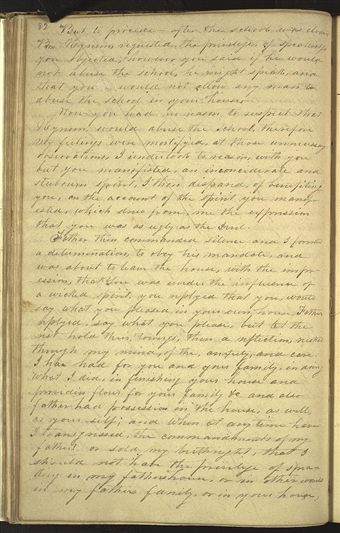 82 But, to provide - after the school was closed
Bro. Wm. requested the privilege of speaking
you objected, however you said if he would
not abuse the school, he might speak, and
that you would not allow any man to
abuse the school in your house
Now you had no reason to suspect that
Wm. would abuse the school, therefore
my feelings were mortified, at those unnecessary
observations, I undertook to reason with you
but you manifested an inconsiderate and
stubourn spirit, I then dispared, of benefiting
you, on the account of the spirit you manif-
ested, which drew from me the expression
that you was as ugly as the Devil.
Father then commanded silence and I formed
a determination, to obey his mandate, and
was about to leave the house, with the impr-
ession, that you was under the influence of
a wicked spirit, you replyed that you, would
say what you pleased in your own house, Father
replyed, say what you please, but let the
rest hold their toungs, then a reflection, rushed
through my mind, of the anxiety, and care
I had had for you and your family, in doing
what I did, in finishing your house and
providin flour for your family &c and also
father had possession in, the house, as well,
as your self; and when at any time have
I transgressed, the commandments of my
father? or sold my birthright, that I
should not have the privilege of spea-
king in my fathers house, or in other words
in my fathers family, or in your house,